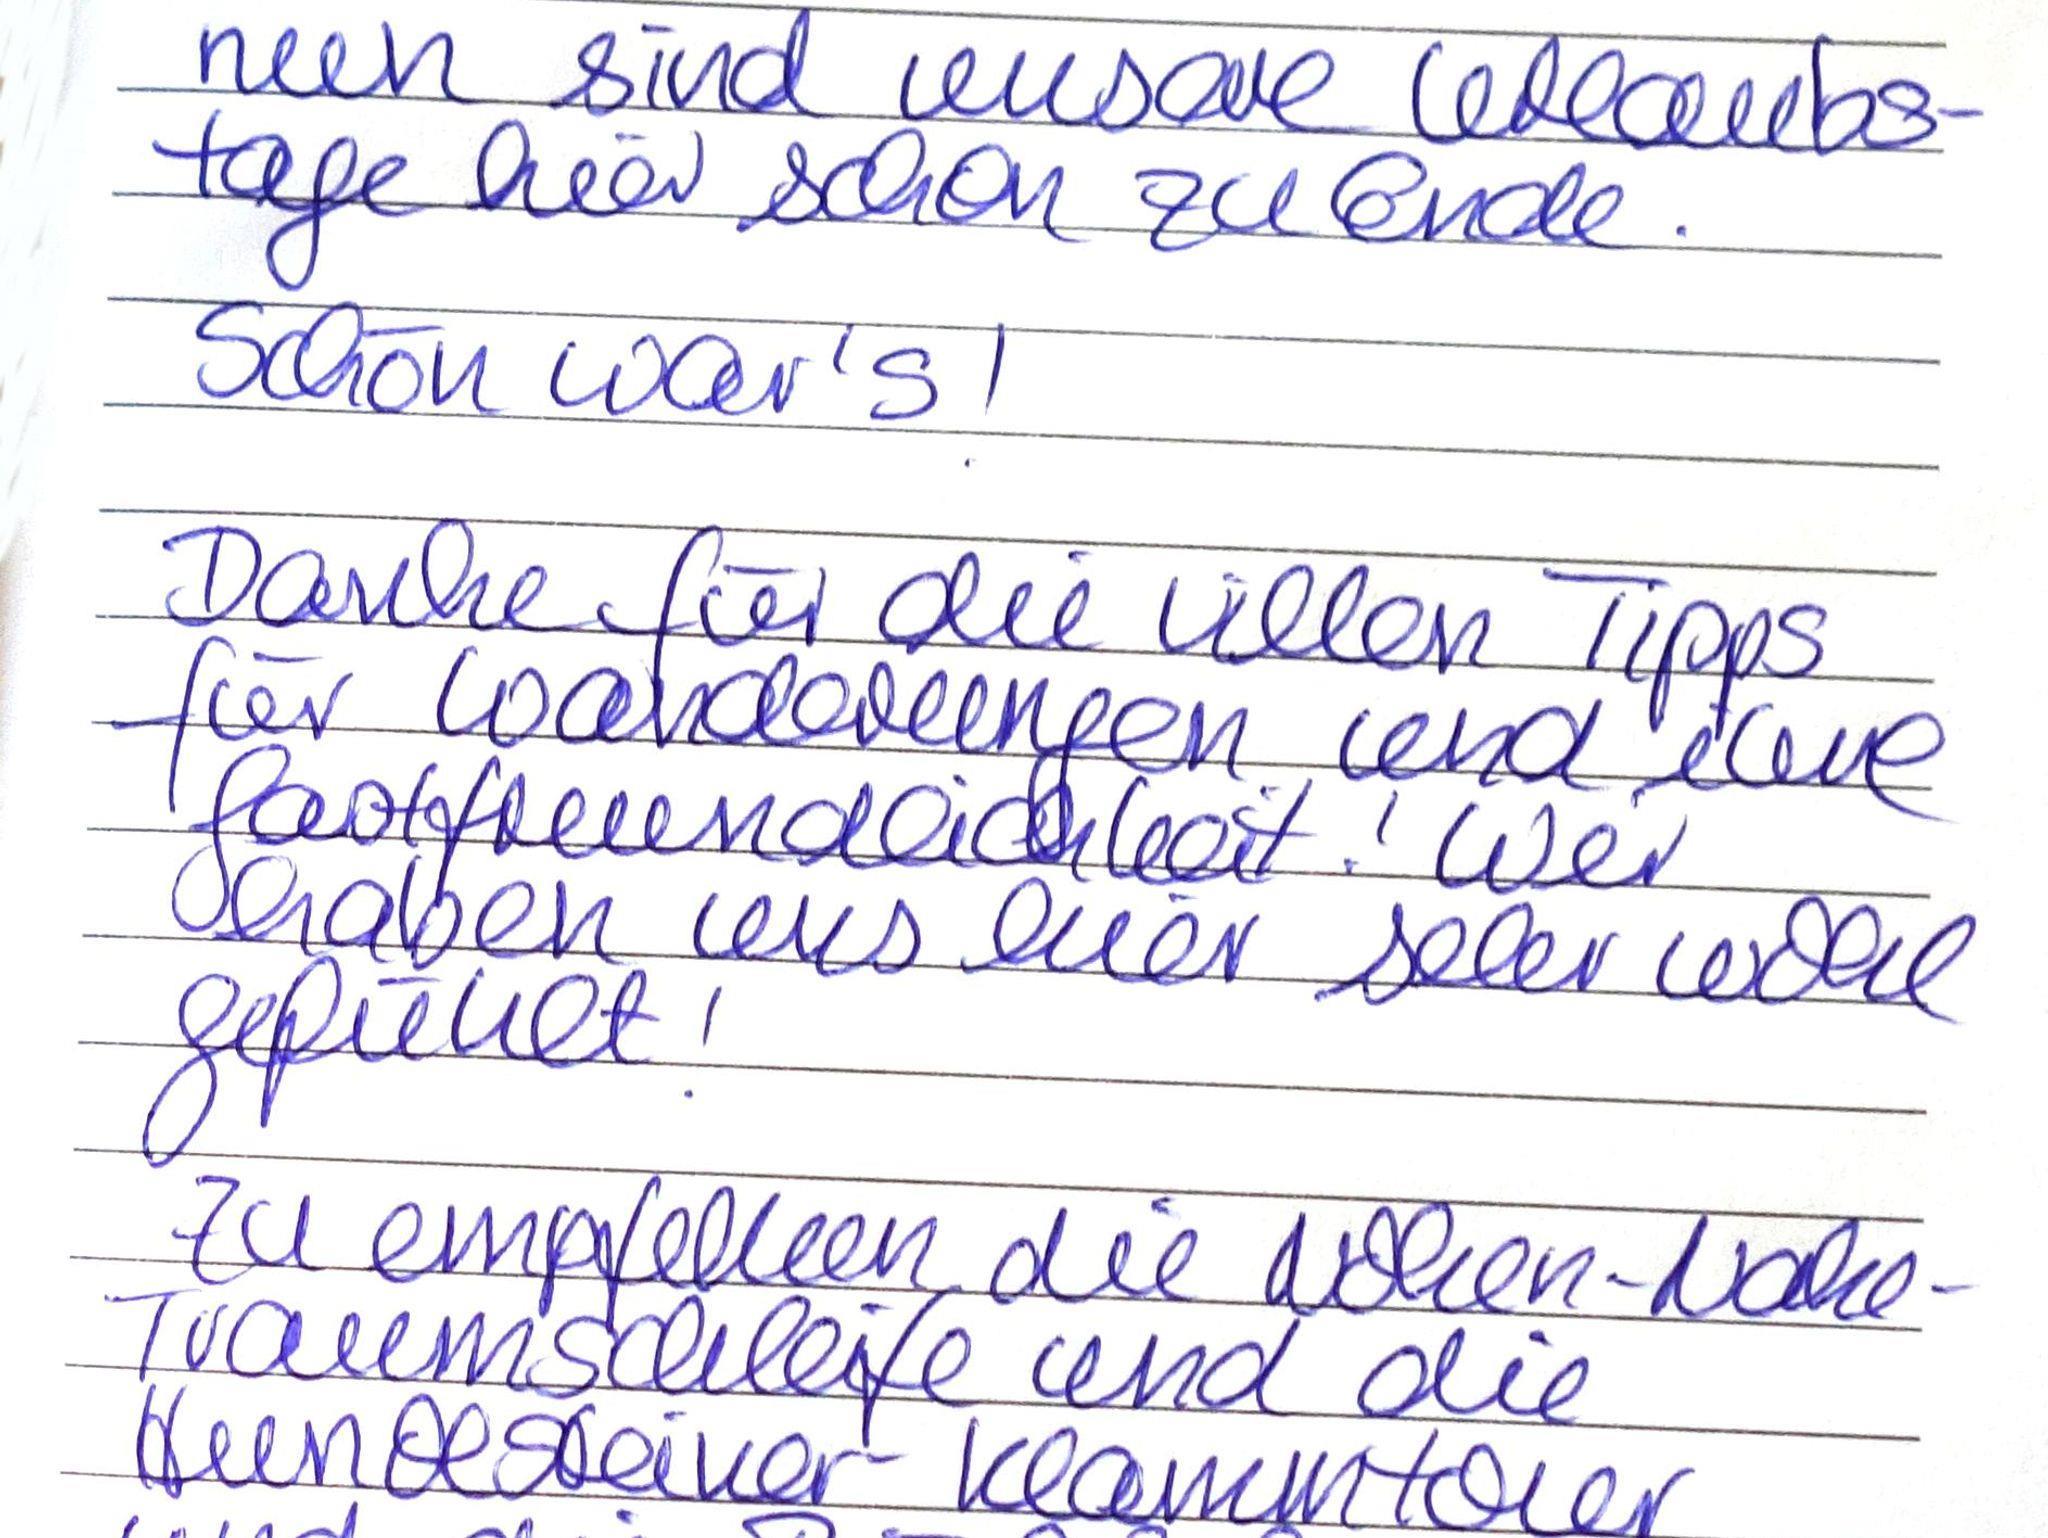 nun sind unsere Urlaubs-
tage hier schon zu Ende.
Schön war's!
Danke für die vielen Tipps
für Wanderungen und eure
Gastfreundlichkeit! Wir
haben uns hier sehr wohl
gefühlt!
Zu empfehlen die Nohen-Nahe-
Traumschleife und die
Klammtour